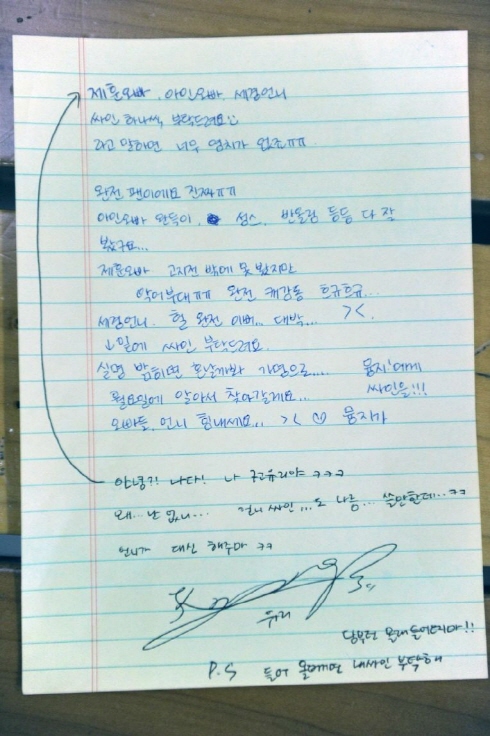 제훈오빠, 아인오빠, 세경언니
싸인 하나씩, 부탁드려요
라고 말하면 너무 염치가 없죠ㅠㅠ
완전 팬이에요 진짜ㅠㅠ
아인오빠 완득이, 성스, 반올림 등등 다 잘
봤구요...
제훈오빠 고지전 밖에 못 봤지만
악어부대ㅠㅠ 완전 캐감동 흐규흐규...
세경언니. 헐 완전 이뻐... 대박... ><
↓일에 싸인 부탁드려요.
실명 밝히면 혼날까봐 가명으로.... 뮹지'에게
월요일에 알아서 찾아갈게요... 싸인을!!!
오빠들, 언니 힘내세요.. >< ☺ 뮹지가
안녕?! 나다! 나 권유리야 ㅋㅋㅋ
왜... 난 없니... 언니 싸인...도 나름... 쓸만한데...ㅋㅋ
언니가 대신 해주마 ㅋㅋ
유리
담부턴 몰래 들어오지마!!
P.S 들어올꺼면 내싸인 부탁해